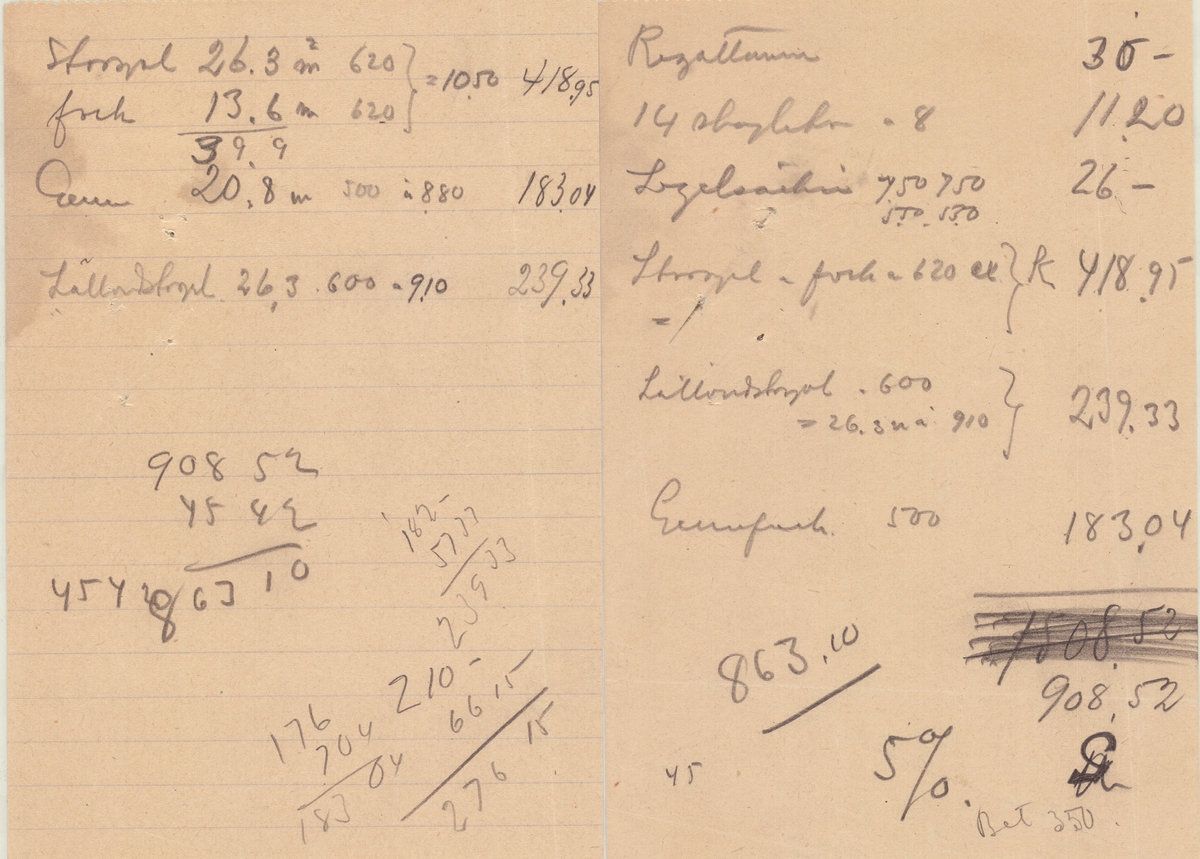 Storsegel 26.3 m² 620 } = 10.50 418.95
fock 13.6 m 620
39.9
Genua 20.8 m 500 à 880 183.04
Lättvindstorsegel 26.3 . 600 à 9.10 239.33
908 52
45 42
863 10
454
182-
57 33
239 33
210-
66 15
276 15
176
7 04
183 04
30-
14 à 8 11 20
750 750 26 -
550 550
Storsegel à fock à 620 } 418.95
= 1
Lättvindstorsegel . 600 } 239.33
= 26.3 m à 910
Genuafock. 500 183.04
1508.52
908,52
863.10
5%.
45
Bet 350.